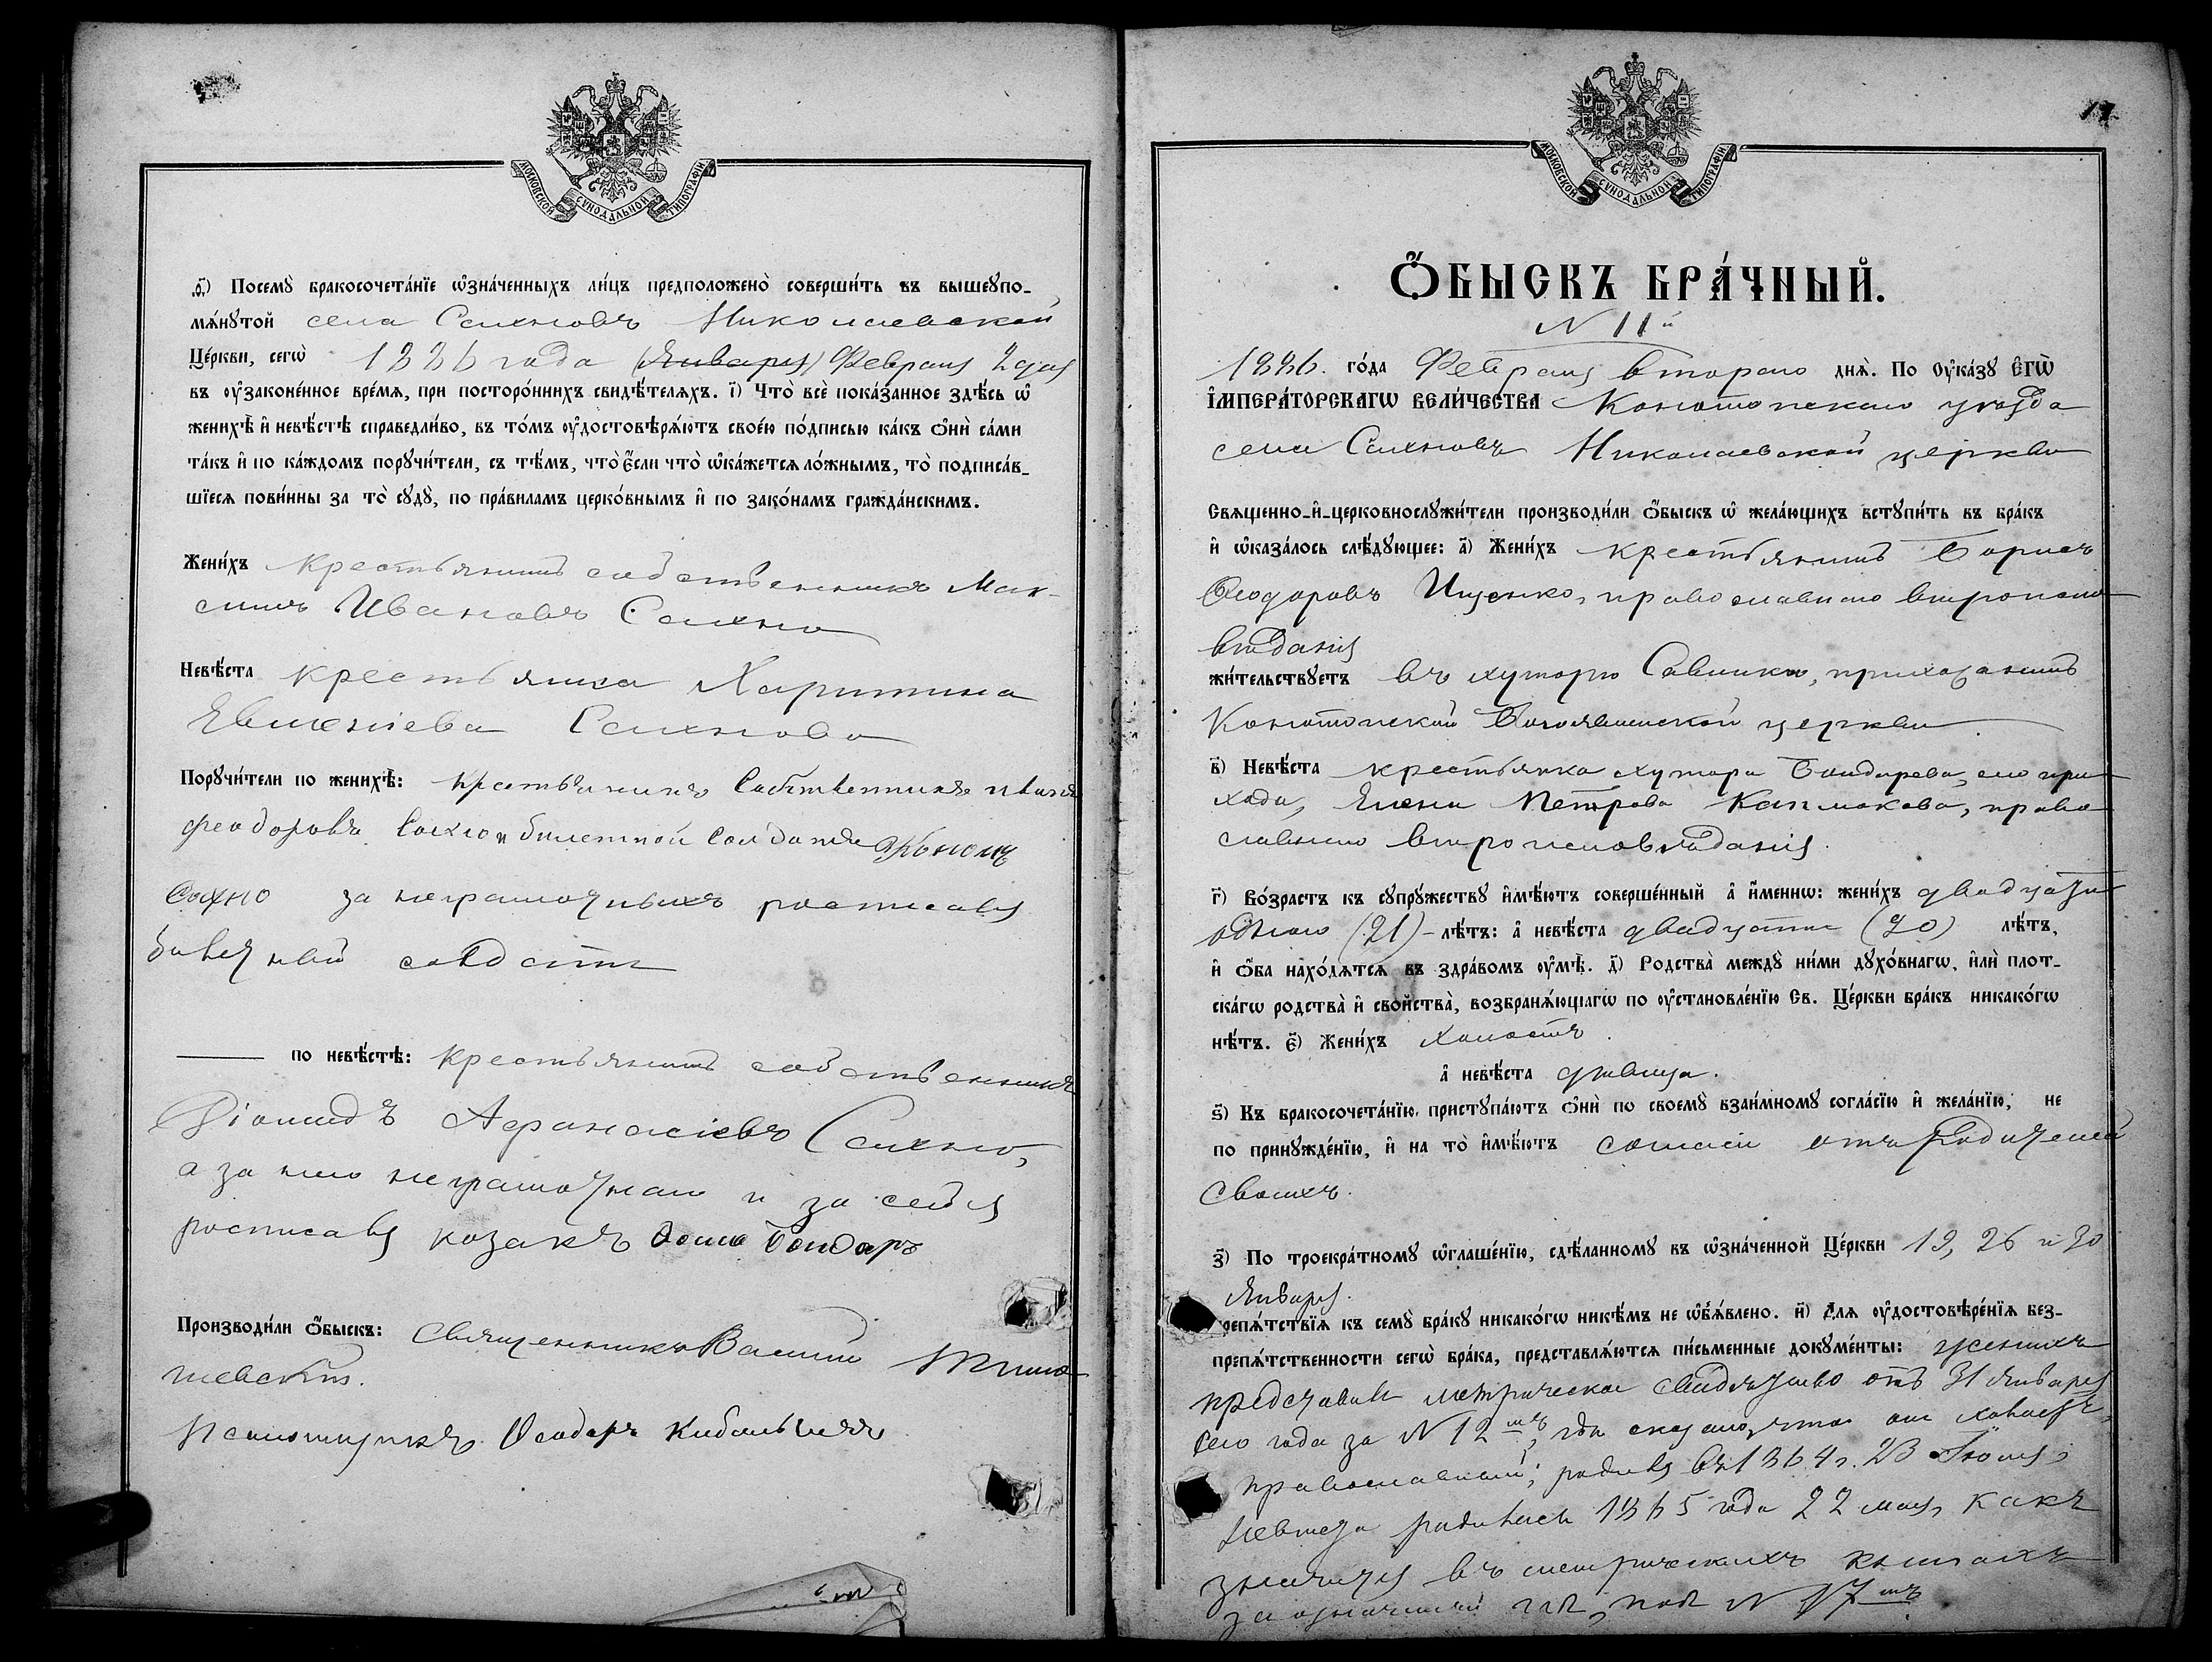 МОСКОВСКОЙ СѴНОДАЛЬНОЙ ТИПОГРАФІИ
ѳ҃) Посемꙋ̀ бракосочета́нїе ѡ҆зна́ченныхъ ли́цъ предположено̀ соверши́ть въ вышеꙋпо-
мѧ́нꙋтой села Сахновъ Николаевской
Це́ркви, сегѡ̀ 1886 года (Января) Февраля 2 дня
въ ᲂу҆законе́нное вре́мѧ, при посторо́ннихъ свидѣ́телѧхъ. і҃) Что̀ всѐ пока́занное здѣ́сь ѡ҆
женихѣ̀ и҆ невѣ́стѣ справедли́во, въ то́мъ ᲂу҆достовѣрѧ́ютъ свое́ю по́дписью ка́къ ѻ҆нѝ са́ми
та́къ и҆ по ка́ждомъ порꙋчи́тели, съ тѣ́мъ, что̀ є҆́сли что̀ ѡ҆ка́жетсѧ ло́жнымъ, то̀ подписа́в-
шїесѧ пови́нны за то̀ сꙋдꙋ̀, по пра́виламъ церко́внымъ и҆ по зако́намъ гражда́нскимъ.
Жени́хъ крестьянинъ собственникъ Мак-
симъ Ивановъ Сахно
Невѣ́ста крестьянка Харитина
Евгеніева Сахнова
Порꙋчи́тели по женихѣ̀: крестьянинъ Собственникъ Иванъ
Феодоровъ Сахно и билетной Солдатъ
Сахно за неграмотныхъ росписался
солдатъ
по невѣ́стѣ: крестьянинъ собственникъ
Діомидъ Афанасіевъ Сахно,
а за него неграмотнаго и за себя
росписався козакъ Бондарь
Производи́ли ѻ҆́быскъ: Священникъ Василій
шевскій.
Псаломщикъ Феодоръ Кибальчичъ
17
МОСКОВСКОЙ СѴНОДАЛЬНОЙ ТИПОГРАФІИ
Ѻ҆́БЫСКЪ БРА́ЧНЫЙ.
N 11й
1886. го́да Февраля втораго днѧ̀. По Оу҆ка́зꙋ Є҆гѡ̀
І҆мпера́торскагѡ вели́чества Конотопскаго уѣзда
села Сахновъ Николаевской церкви
Свѧщенно-и҆-церковнослꙋжи́тели производи́ли ѻ҆́быскъ ѡ҆ жела́ющихъ встꙋпи́ть въ бра́къ
и҆ ѡ҆каза́лось слѣ́дꙋющее: а҃) Жени́хъ крестьянинъ Борисъ
Феодоровъ Ищенко, православнаго вѣроиспо-
вѣданія
жи́тельствꙋетъ въ хуторѣ Савинки, прихожанинъ
Конотопской Богоявленской церкви.
в҃) Невѣ́ста крестьянка хутора Бондарева, сего при-
хода, Елена Петрова Калмакова, право-
славнаго вѣроисповѣданія.
г҃) Во́зрастъ къ сꙋпрꙋ́жествꙋ и҆мѣ́ютъ соверше́нный а҆ и҆́меннѡ: жени́хъ двадцати
одного (21) - лѣ́тъ: а҆ невѣ́ста двадцати (20) лѣ́тъ,
и҆ ѻ҆́ба нахо́дѧтсѧ въ здра́вомъ ᲂу҆мѣ̀. д҃) Родства̀ междꙋ̀ ни́ми дꙋхо́внагѡ, и҆лѝ плот-
ска́гѡ родства̀ и҆ сво́йства̀, возбранѧ́ющагѡ по ᲂу҆становле́нїю Св. Це́ркви бра́къ никако́гѡ
нѣ́тъ. є҃) Жени́хъ холостъ.
а҆ невѣ́ста дѣвица.
ѕ҃) Къ бракосочета́нїю пристꙋпа́ютъ ѻ҆нѝ по своемꙋ̀ взаи́мномꙋ согла́сїю и҆ жела́нїю, не
по принꙋжде́нїю, и҆ на то̀ и҆мѣ́ютъ согласіе отъ Родителей
Своихъ.
з҃) По троекра́тномꙋ ѡ҆глаше́нїю, сдѣ́ланномꙋ въ ѡ҆зна́ченной Це́ркви 19, 26 и 30
Января.
препѧ́тствїѧ къ семꙋ̀ бра́кꙋ никако́гѡ никѣ́мъ не ѡ҆б̾ѧ́влено. и҃) Длѧ ᲂу҆достовѣре́нїѧ без-
препѧ́тственности сегѡ̀ бра́ка, представлѧ́ютсѧ пи́сьменные докꙋме́нты: женихъ
представилъ метрическое свидѣтельство отъ 31 января
сего года за N 12мъ, гдѣ сказано, что онъ холостъ,
православный; родився въ 1864 г. 23 Іюля,
невѣста родилась 1865 года 22 мая, какъ
значится въ метрическихъ книгахъ
за означенный годъ, подъ N 17мъ